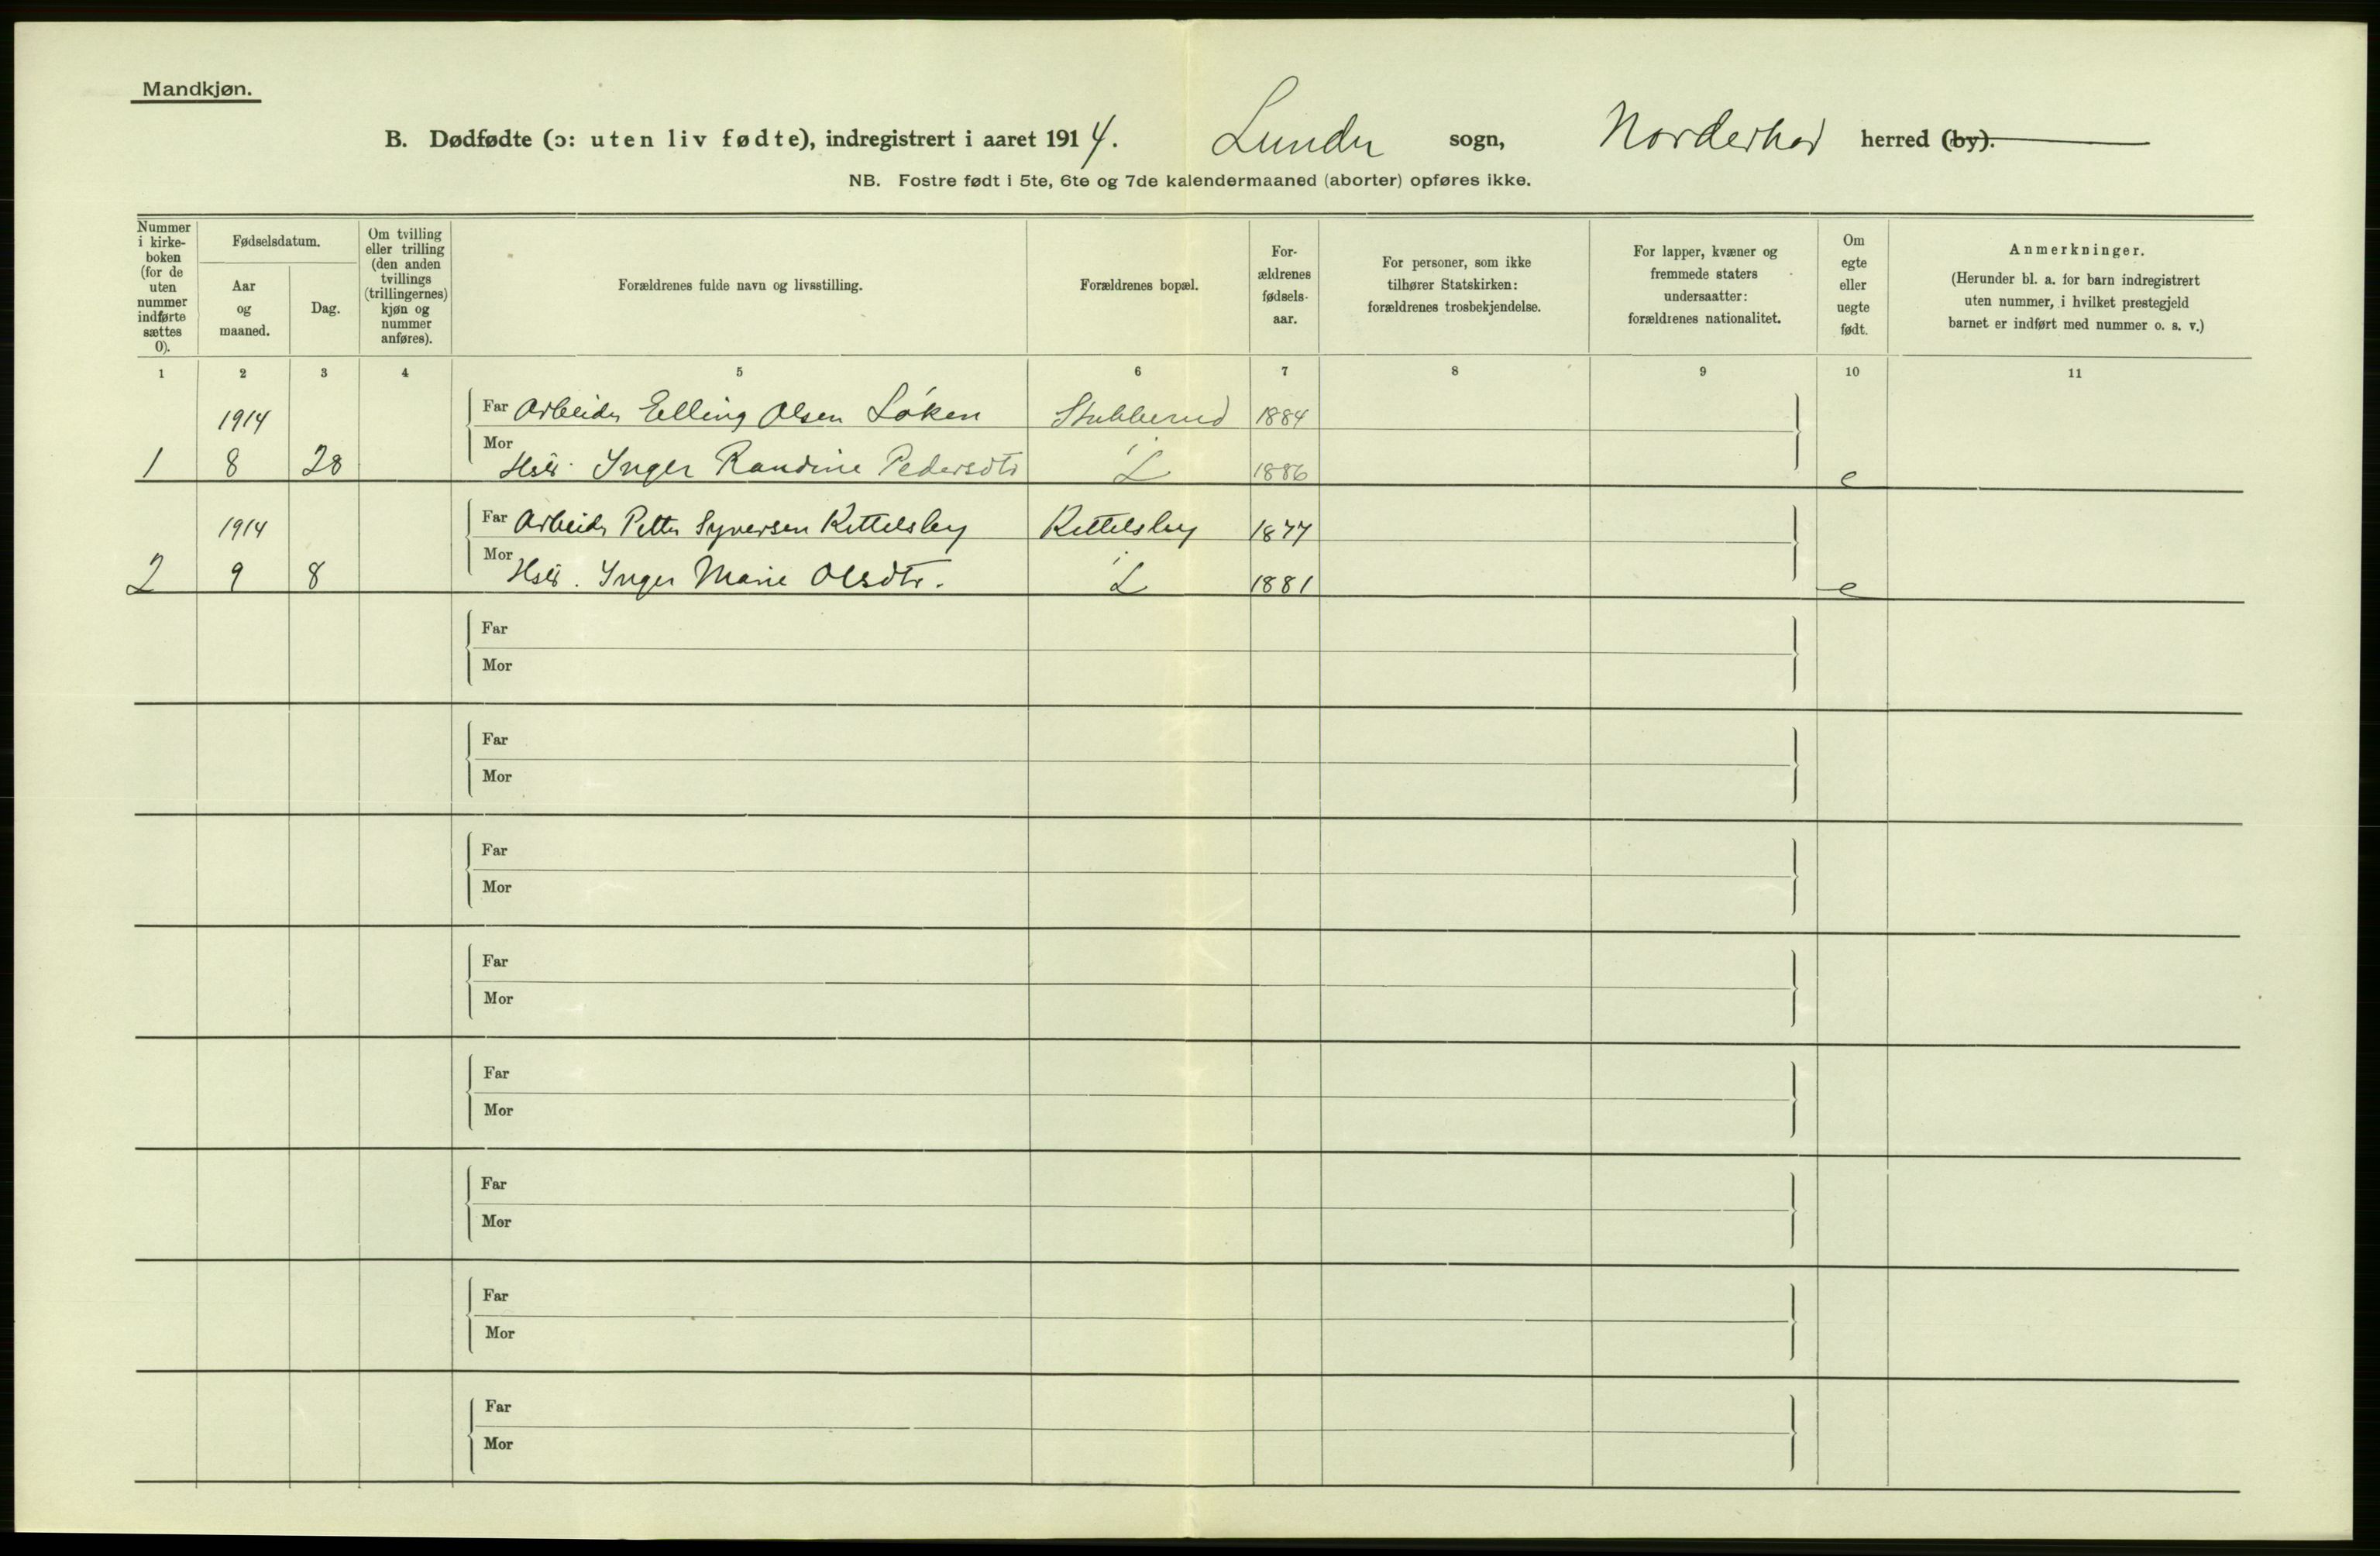 Mandkjøn.
B. Dødfødte (ɔ: uten liv fødte), indregistrert i aaret 1914. Lunder sogn, Norderhov herred (by).
NB. Fostre født i 5te, 6te og 7de kalendermaaned (aborter) opføres ikke.
Nummer i kirke-boken (for de uten nummer indførte sættes 0).
Fødselsdatum.
Aar og maaned.
Dag.
Om tvilling eller trilling (den anden tvillings (trillingernes) kjøn og nummer anføres).
Forældrenes fulde navn og livsstilling.
Forældrenes bopæl.
For-ældrenes fødsels-aar.
For personer, som ikke tilhører Statskirken: forældrenes trosbekjendelse.
For lapper, kvæner og fremmede staters undersaatter: forældrenes nationalitet.
Om egte eller uegte født.
Anmerkninger.
(Herunder bl. a. for barn indregistrert uten nummer, i hvilket prestegjeld barnet er indført med nummer o. s. v.)
1 2 3 4 5 6 7 8 9 10 11
1914 Far Arbeider Elling Olsen Løken Stubberud 1884
1 8 28 Mor Inger Randine Pedersdtr 1886 e
1914 Far Arbeider Petter Syversen Kittelsby Kittelsby 1877
2 9 8 Mor Inger Marie Olsdtr. 1881 e
Far
Mor
Far
Mor
Far
Mor
Far
Mor
Far
Mor
Far
Mor
Far
Mor
Far
Mor